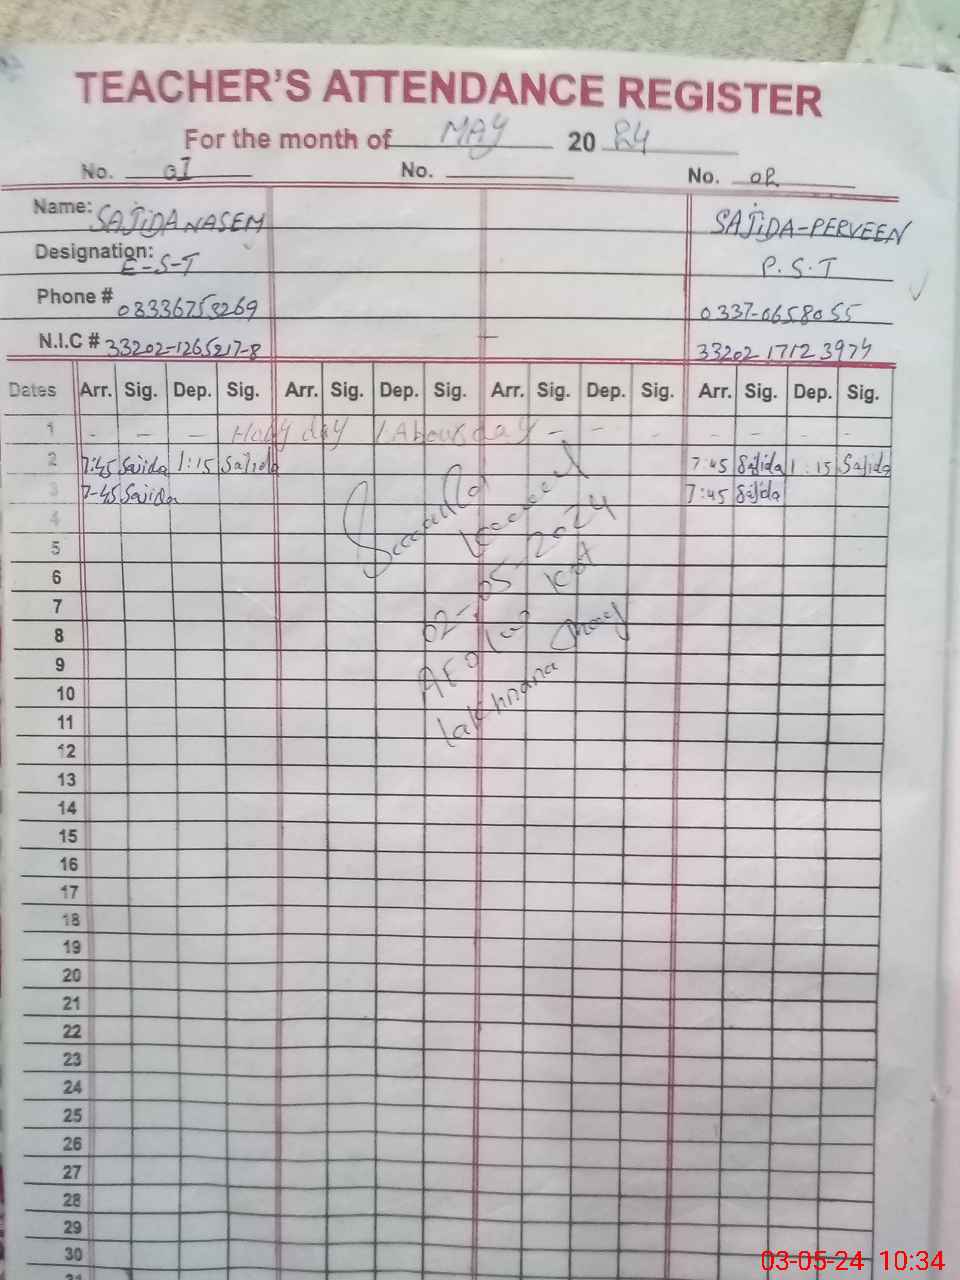 TEACHER'S ATTENDANCE REGISTER
For the month of MAY 20 24
No. 01 No. No. 02
Name: SAJIDA NASEM SAJIDA-PERVEEN
Designation: E-S-T P.S.T
Phone # 03336753269 0337-0658055
N.I.C # 33202-1265217-8 33202 1712 3974
Dates Arr. Sig. Dep. Sig. Arr. Sig. Dep. Sig. Arr. Sig. Dep. Sig. Arr. Sig. Dep. Sig.
1 - - - Holy day Labours day - - - - - - -
2 7:45 Sajida 1:15 Sajida 7:45 Sajida 1:15 Sajida
3 7-45 Sajida 7:45 Sajida
4
5
02-05-2024
6
Kot
7
8
AEO
9
10
lakhnana
11
12
13
14
15
16
17
18
19
20
21
22
23
24
25
26
27
28
29
30
31
03-05-24 10:34